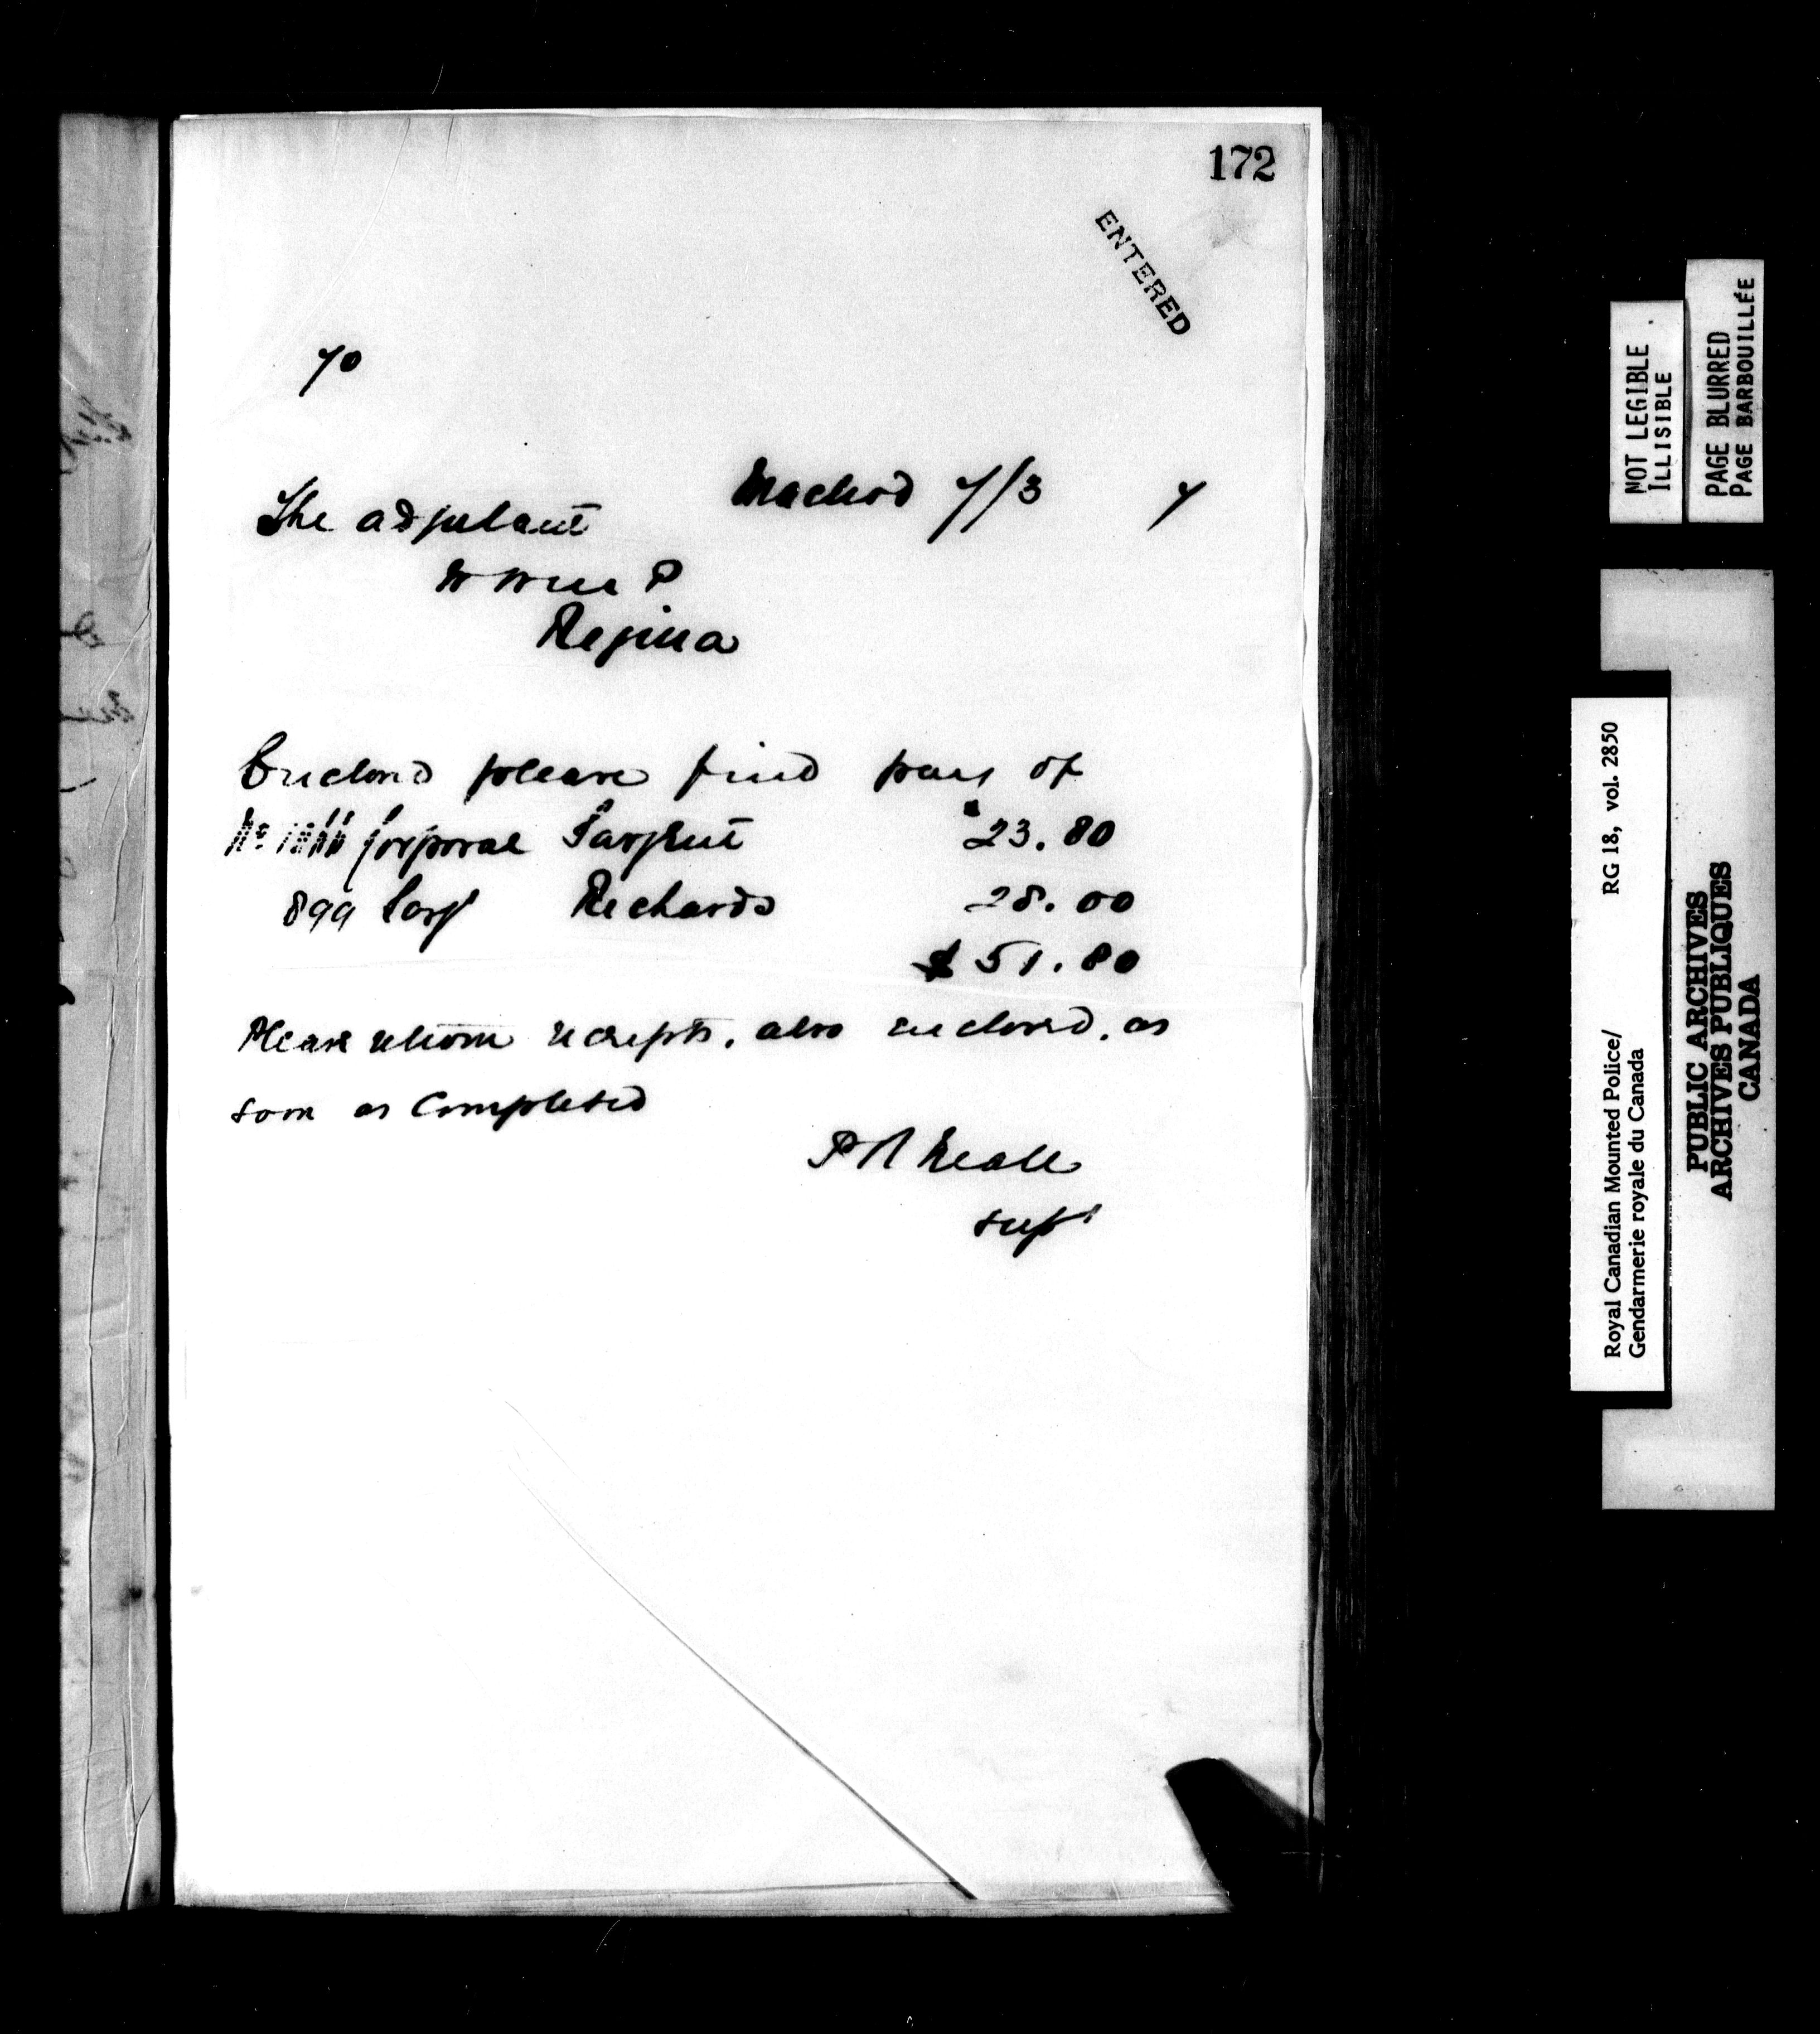 172
ENTERED
70
Macleod 7/3 7
The adjutant
N W M P
Regina
Enclosed please find pay of
No Corporal Sargent $23.80
899 Corpl Richards 28.00
$51.80
Please return receipts, also enclosed, as
soon as Completed
P R Neale
Supt
NOT LEGIBLE
ILLISIBLE
PAGE BLURRED
PAGE BARBOUILLÉE
Royal Canadian Mounted Police/ RG 18, vol. 2850
Gendarmerie royale du Canada
PUBLIC ARCHIVES
ARCHIVES PUBLIQUES
CANADA